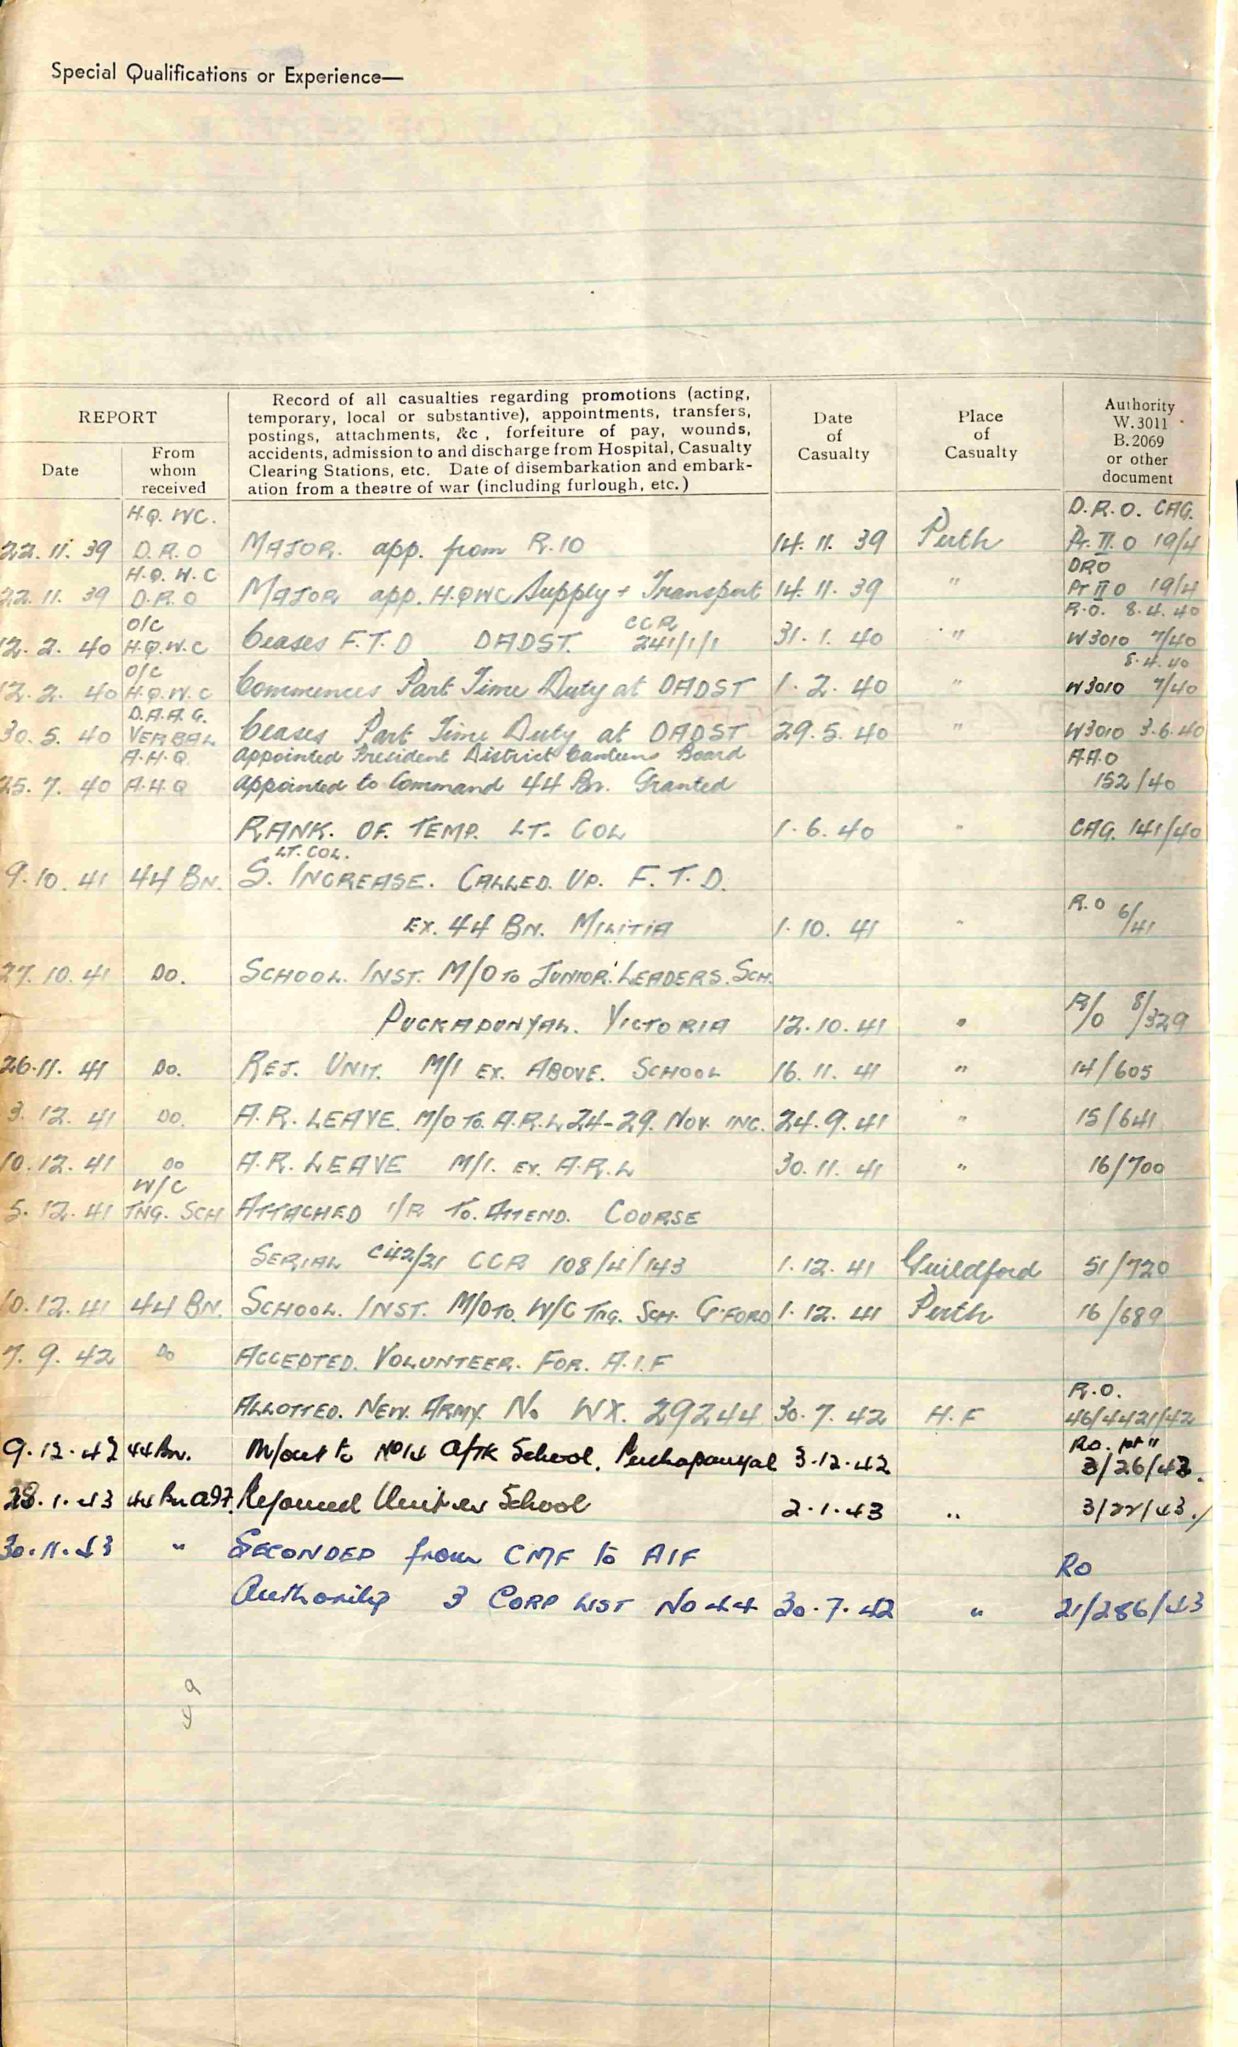 Special Qualifications or Experience—
REPORT
Date
From whom received
Record of all casualties regarding promotions (acting,
temporary, local or substantive), appointments, transfers,
postings, attachments, &c, forfeiture of pay, wounds,
accidents, admission to and discharge from Hospital, Casualty
Clearing Stations, etc. Date of disembarkation and embark-
ation from a theatre of war (including furlough, etc.)
Date of Casualty
Place of Casualty
Authority W.3011 B.2069 or other document
H.Q. WC. D.R.O. CAG.
22. 11. 39 D.R.O MAJOR. app. from R.10 14. 11. 39 Perth Pt. II. O 19/4
H.Q. W.C DRO
22. 11. 39 D.R.O MAJOR app. H.QWC Supply + Transport 14. 11. 39 " Pt II O 19/4
O/C CCR R.O. 8.4.40
12. 2. 40 H.Q.W.C Ceases F.T.D DADST. 241/1/1 31. 1. 40 " W3010 7/40
O/C 8.4.40
12. 2. 40 H.Q.W.C Commences Part Time Duty at DADST 1. 2. 40 " W3010 7/40
D.A.A.G.
30. 5. 40 VERBAL Ceases Part Time Duty at DADST 29. 5. 40 " W3010 3.6.40
A.H.Q appointed President District Canteens Board A.A.O
25. 7. 40 A.H.Q appointed to Command 44 Bn. Granted 152/40
RANK. OF. TEMP. LT. COL 1. 6. 40 " CAG. 141/40
LT. COL.
9. 10. 41 44 BN. S. INCREASE. CALLED. UP. F.T.D.
EX. 44 BN. MILITIA 1. 10. 41 " R.O 6/41
27. 10. 41 DO. SCHOOL. INST. M/O TO JUNIOR. LEADERS. SCH.
PUCKAPUNYAL. VICTORIA 12. 10. 41 " R/O 8/329
26. 11. 41 DO. REJ. UNIT. M/I EX. ABOVE. SCHOOL 16. 11. 41 " 14/605
3. 12. 41 DO. A.R. LEAVE. M/O TO. A.R.L 24-29. NOV. INC. 24. 9. 41 " 15/641
10. 12. 41 DO A.R. LEAVE M/I. EX. A.R.L 30. 11. 41 " 16/700
W/C
5. 12. 41 TNG. SCH ATTACHED I/R TO. ATTEND. COURSE
SERIAL C42/21 CCR 108/4/143 1. 12. 41 Guildford 51/720
10. 12. 41 44 BN. SCHOOL. INST. M/O TO. W/C TNG. SCH. G'FORD 1. 12. 41 Perth 16/689
7. 9. 42 DO ACCEPTED. VOLUNTEER. FOR. A.I.F
R.O.
ALLOTTED. NEW. ARMY. No WX. 29244 30. 7. 42 H.F 46/4421/42
9. 12. 42 44 Bn. M/out to No 14 A/TK School, Puckapanyal 3. 12. 42 RO. pt 11 3/26/43.
28. 1. 43 44 Bn Rejoined Unit ex School 2. 1. 43 " 3/22/43.
30. 11. 43 " SECONDED from CMF to AIF RO
Authority 3 CORP LIST No 44 30. 7. 42 " 21/286/43